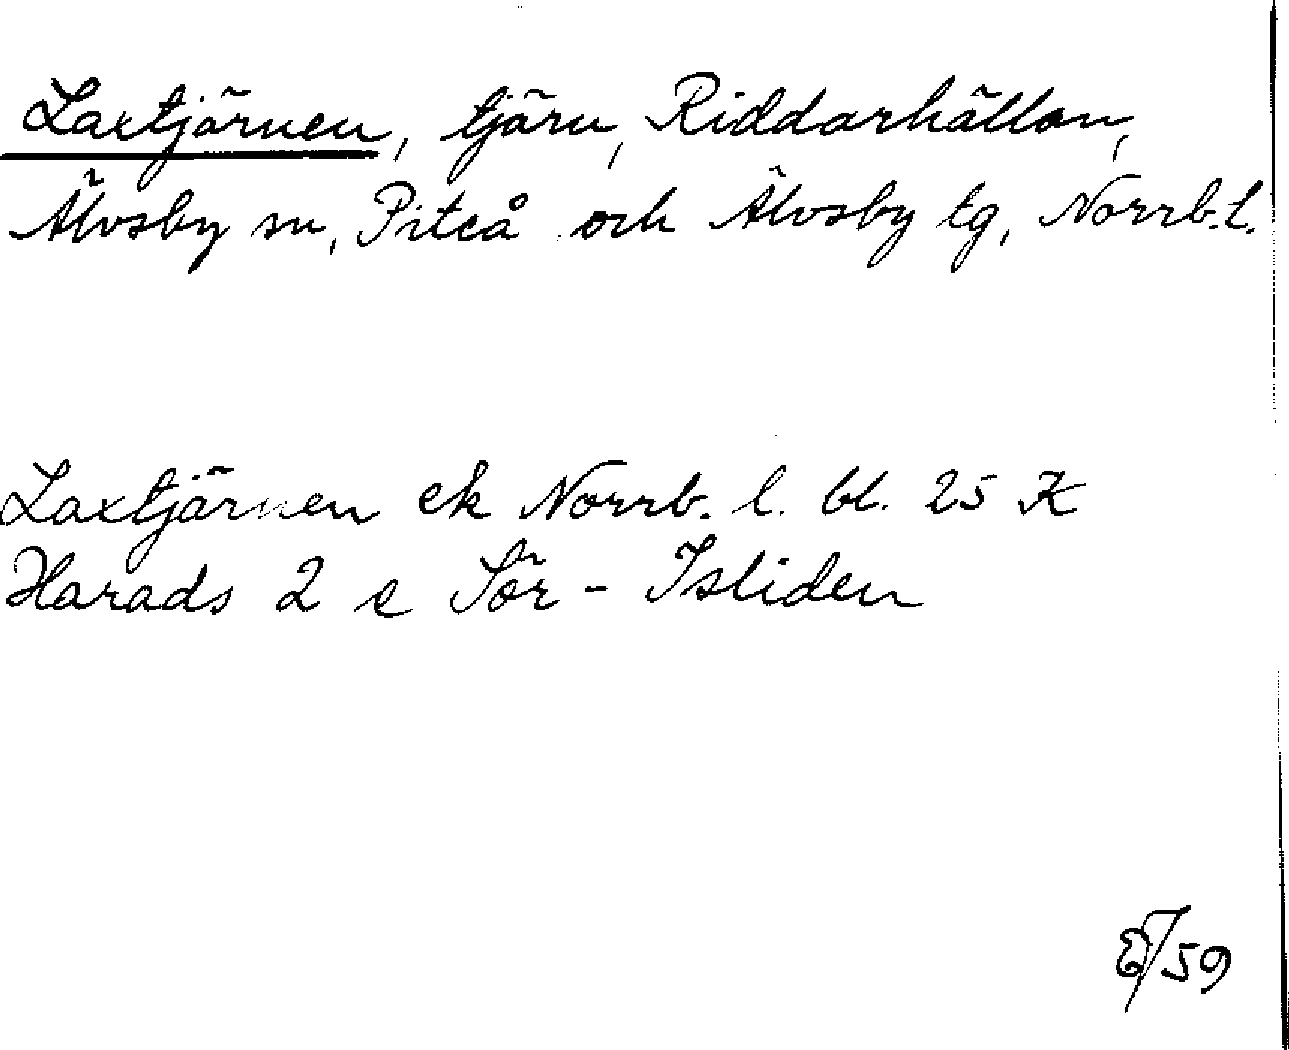 Laxtjärnen, tjärn, Riddarhällan,
Älvsby sn, Piteå och Älvsby tg, Norrb.l.
Laxtjärnen ek Norrb. l. bl. 25 K
Harads 2 e Sör-Isliden
/59